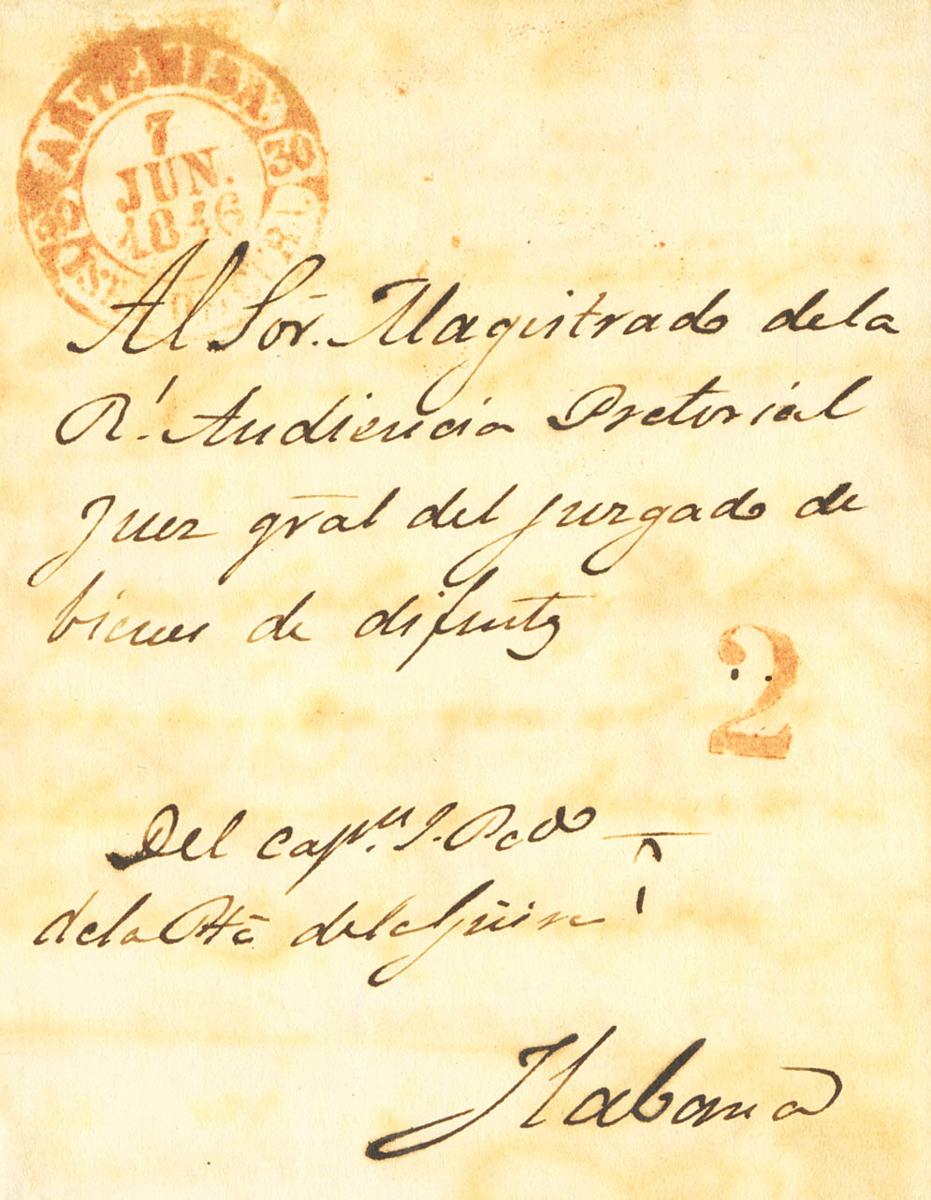 7
JUN.
1846
30
Al Sör. Magistrado dela
Rˡ. Audiencia Pretorial
Juez gr̄al del juzgado de
bienes de difuntˢ
2
Del capⁿ. J. Pedº
dela Pta dela Güira
Habana